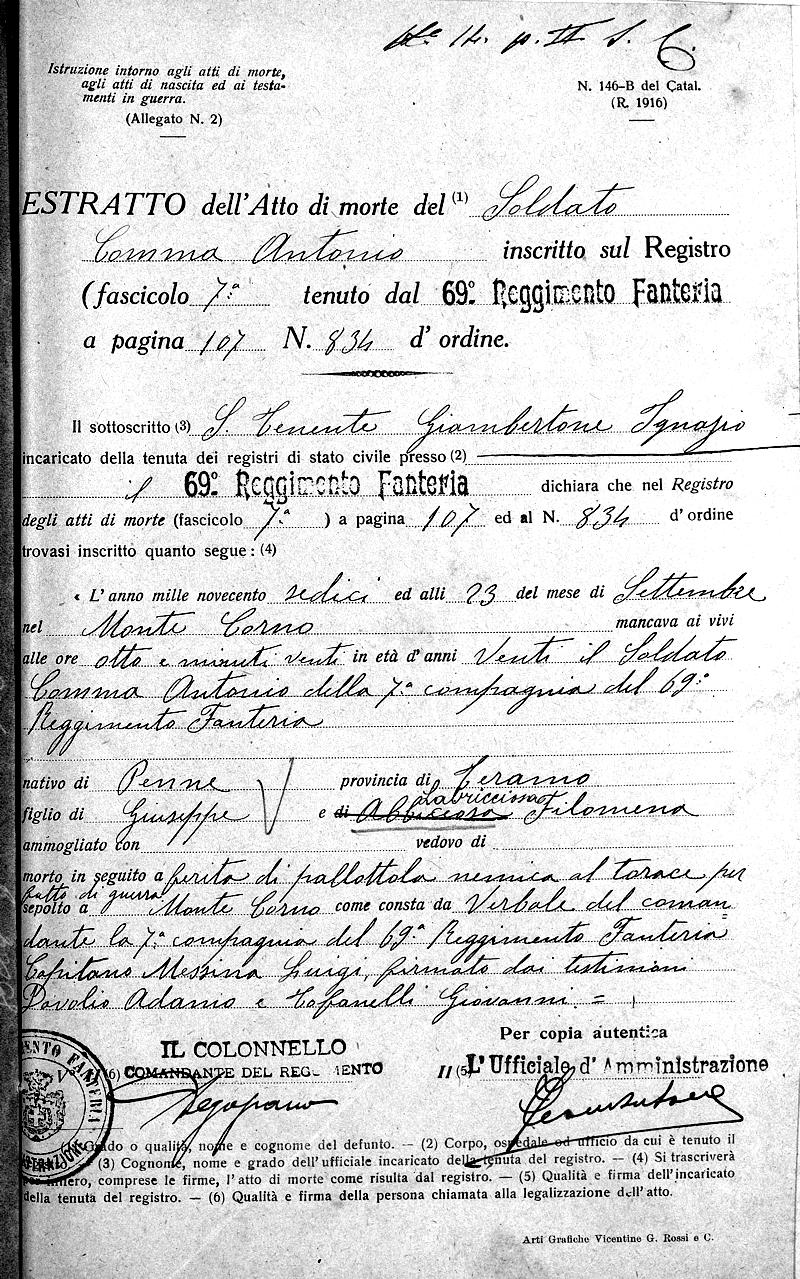 N. 14. p. II S. C.
Istruzione intorno agli atti di morte,
agli atti di nascita ed ai testa-
menti in guerra.
(Allegato N. 2)
N. 146-B del Catal.
(R. 1916)
ESTRATTO dell'Atto di morte del (1) Soldato
Comma Antonio inscritto sul Registro
(fascicolo 7.ª tenuto dal 69º Reggimento Fanteria
a pagina 107 N. 834 d' ordine.
Il sottoscritto (3) S. Tenente Giambertone Ignazio
incaricato della tenuta dei registri di stato civile presso (2)
il 69º Reggimento Fanteria dichiara che nel Registro
degli atti di morte (fascicolo 7.ª ) a pagina 107 ed al N. 834 d' ordine
trovasi inscritto quanto segue: (4)
« L' anno mille novecento sedici ed alli 23 del mese di Settembre
nel Monte Corno mancava ai vivi
alle ore otto e minuti venti in età d' anni Venti il Soldato
Comma Antonio della 7.ª compagnia del 69º
Reggimento Fanteria
nativo di Penne provincia di Teramo
figlio di Giuseppe e di Filomena
ammogliato con vedovo di
morto in seguito a ferita di pallottola nemica al torace per
fatto di guerra
sepolto a Monte Corno come consta da Verbale del coman=
dante la 7.ª compagnia del 69º Reggimento Fanteria
Capitano Messina Luigi, firmato dai testimoni
Davolio Adamo e Tofanelli Giovanni. =
Per copia autentica
IL COLONNELLO
(6) COMANDANTE DEL REGGIMENTO
Il (5) L'Ufficiale d'Amministrazione
(1) Grado o qualità, nome e cognome del defunto. — (2) Corpo, ospedale od ufficio da cui è tenuto il
(3) Cognome, nome e grado dell'ufficiale incaricato della tenuta del registro. — (4) Si trascriverà
per intero, comprese le firme, l'atto di morte come risulta dal registro. — (5) Qualità e firma dell'incaricato
della tenuta del registro. — (6) Qualità e firma della persona chiamata alla legalizzazione dell'atto.
Arti Grafiche Vicentine G. Rossi e C.